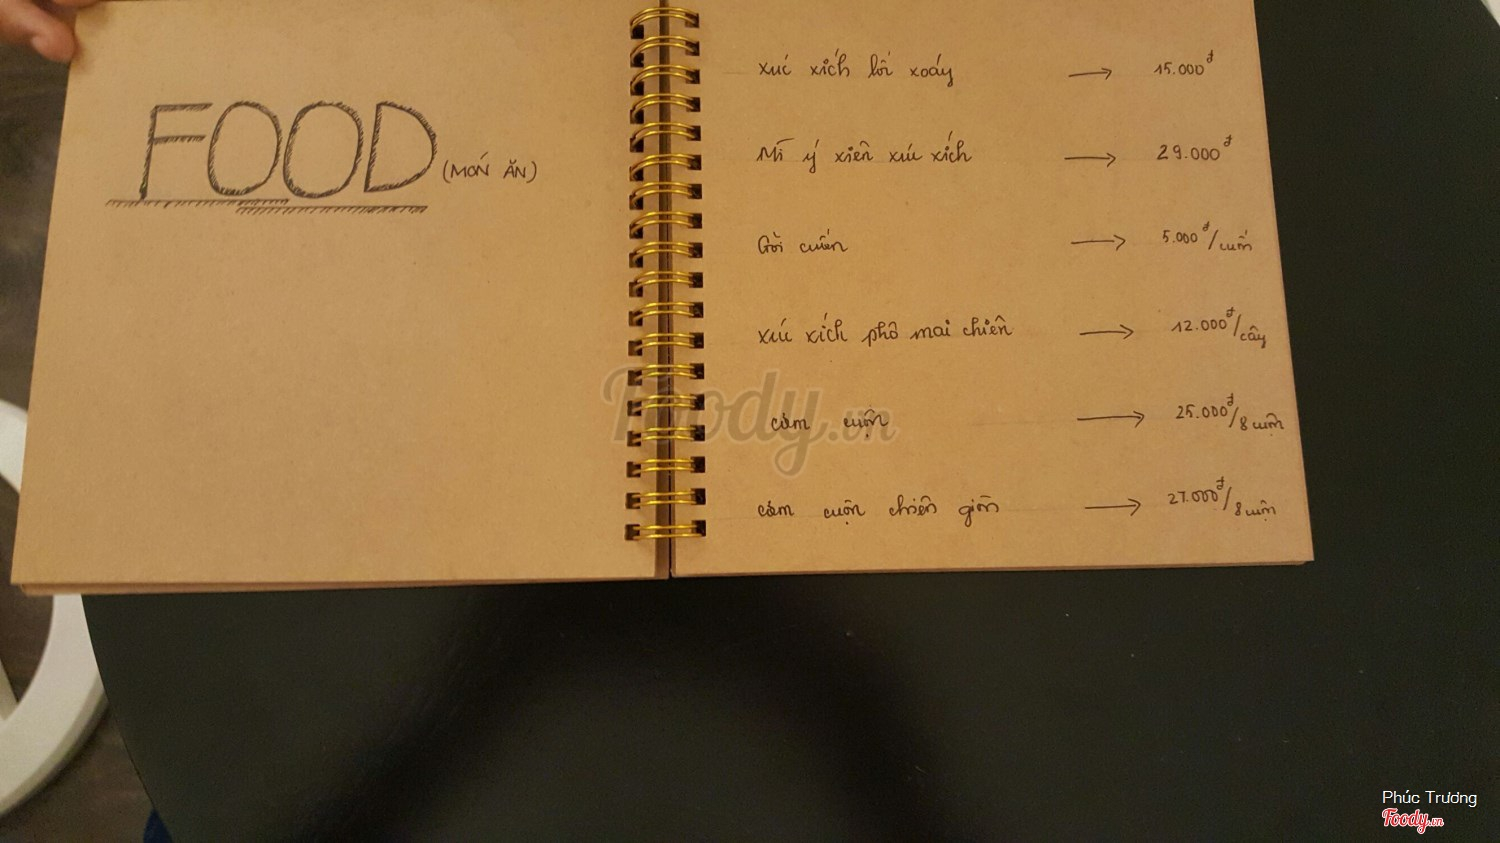 FOOD (MÓN ĂN)
xúc xích lốc xoáy → 15.000đ
Mì ý xiên xúc xích → 29.000đ
Gỏi cuốn → 5.000đ/cuốn
xúc xích phô mai chiên → 12.000đ/cây
cơm cuộn → 25.000đ/8 cuộn
cơm cuộn chiên giòn → 27.000đ/8 cuộn
Foody.vn
Phúc Trương
Foody.vn